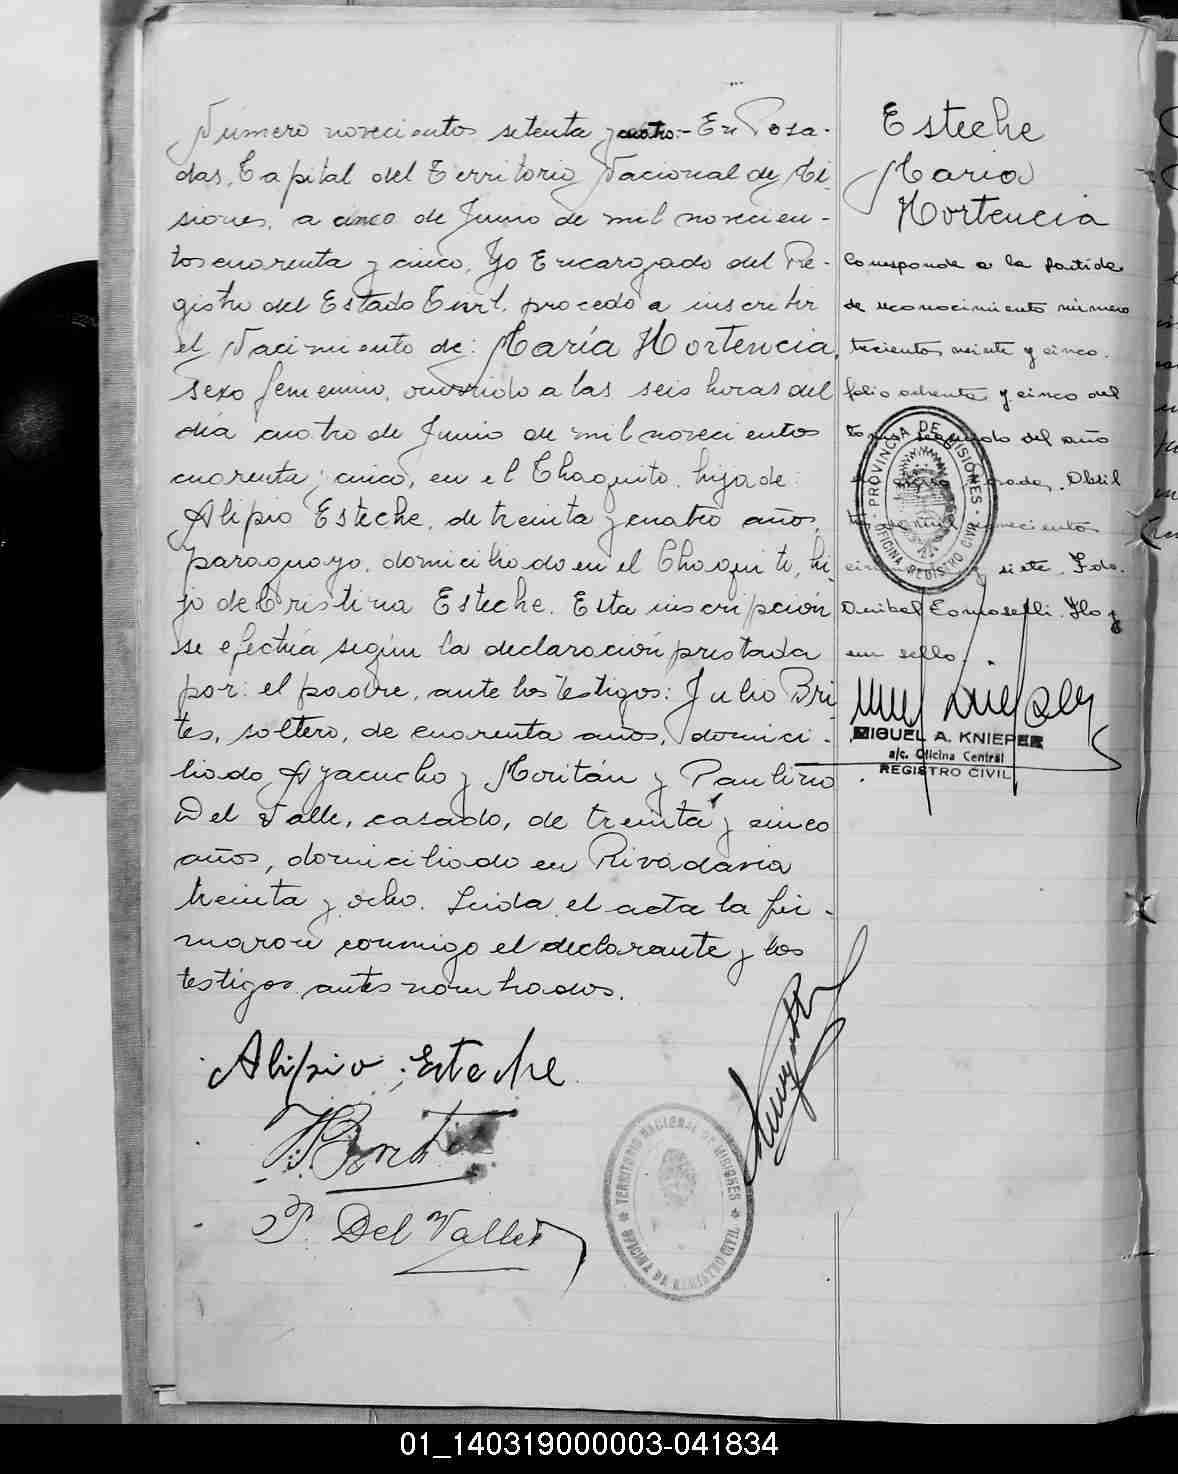 Número novecientos setenta y cuatro.- En Posa-
das, Capital del Territorio Nacional de Mi-
siones, a cinco de Junio de mil novecien-
tos cuarenta y cinco, Yo Encargado del Re-
gistro del Estado Civil, procedo a inscribir
el Nacimiento de: María Hortencia,
sexo femenino, ocurrido a las seis horas del
día cuatro de Junio de mil novecientos
cuarenta y cinco, en el Chaquito, hija de:
Alipio Esteche, de treinta y cuatro años,
paraguayo, domiciliado en el Chaquito, hi-
jo de Cristina Esteche. Esta inscripción
se efectúa según la declaración prestada
por: el padre, ante los testigos: Julio Bri-
tes, soltero, de cuarenta años, domici-
liado Ayacucho y Moritán y Paulino
Del Valle, casado, de treinta y cinco
años, domiciliado en Rivadavia
treinta y ocho. Leida el acta la fir-
maron conmigo el declarante y los
testigos antes nombrados.
Alipio Esteche
P. Del Valle
TERRITORIO NACIONAL DE MISIONES
OFICINA DE REGISTRO CIVIL
Esteche
Maria
Hortencia
Corresponde a la partida
de reconocimiento número
trecientos veinte y cinco.
folio ochenta y cinco del
tomo segundo del año
Abril
novecientos
y siete. Fdo.
Anibal Hay
un sello.
PROVINCIA DE MISIONES
OFICINA REGISTRO CIVIL
MIGUEL A. KNIEPER
a/c. Oficina Central
REGISTRO CIVIL
01_140319000003-041834